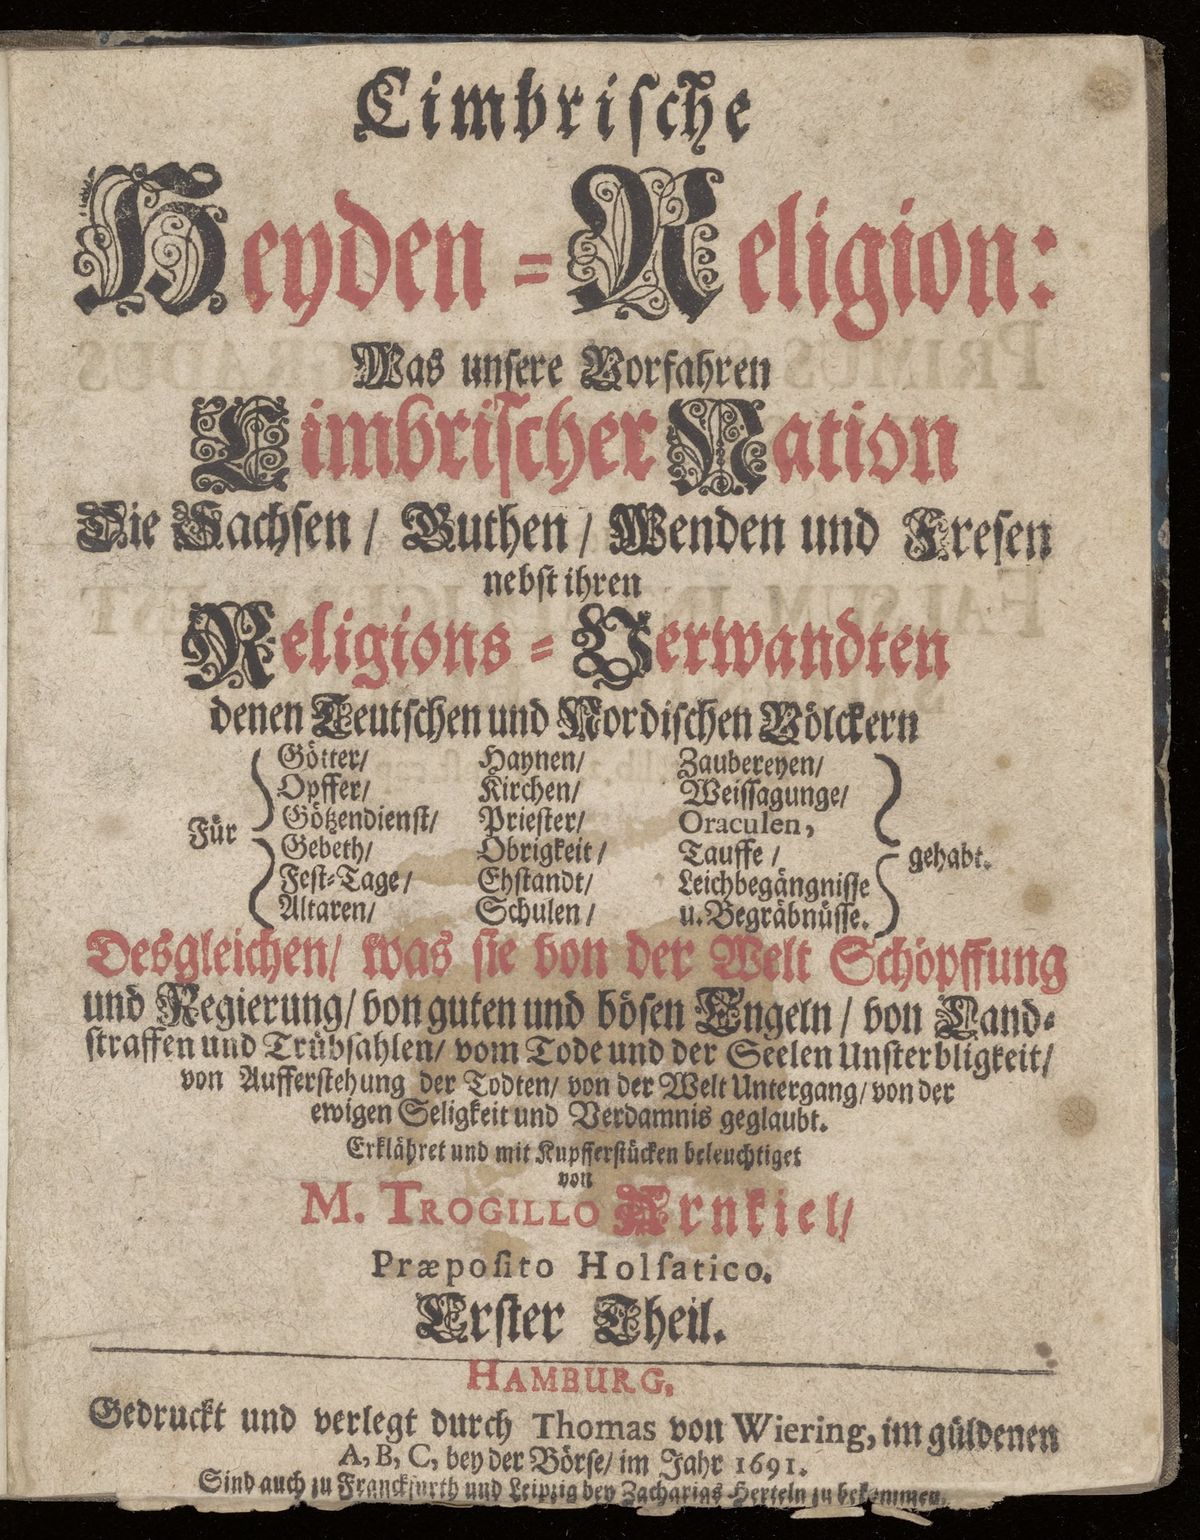 Cimbrische
Heyden-Religion:
Was unsere Vorfahren
Cimbrischer Nation
Die Sachsen / Guthen / Wenden und Fresen
nebst ihren
Religions-Verwandten
denen Teutschen und Nordischen Völckern
Für
Götter/ Haynen/ Zaubereyen/
Opffer/ Kirchen/ Weissagunge/
Götzendienst/ Priester/ Oraculen,
Gebeth/ Obrigkeit/ Tauffe /
Fest-Tage/ Ehstandt/ Leichbegängnisse
Altaren/ Schulen/ u. Begräbnüsse.
gehabt.
Desgleichen/ was sie von der Welt Schöpffung
und Regierung/ von guten und bösen Engeln / von Land-
straffen und Trübsahlen/ vom Tode und der Seelen Unsterbligkeit/
von Aufferstehung der Todten/ von der Welt Untergang/ von der
ewigen Seligkeit und Verdamnis geglaubt.
Erklähret und mit Kupfferstücken beleuchtiget
von
M. TROGILLO Arnkiel/
Præposito Holsatico.
Erster Theil.
HAMBURG,
Gedruckt und verlegt durch Thomas von Wiering, im güldenen
A, B, C, bey der Börse/ im Jahr 1691.
Sind auch zu Franckfurth und Leipzig bey Zacharias Herteln zu bekommen.